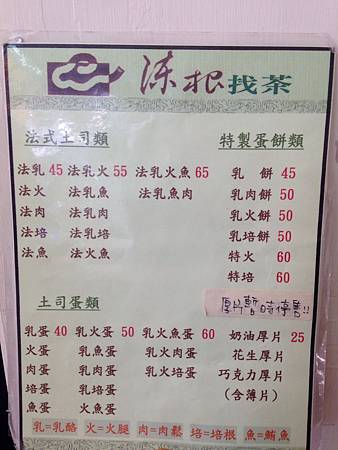 涑根找茶
法式土司類
法乳 45 法乳火 55 法乳火魚 65
法火 法乳魚 法乳魚肉
法肉 法乳肉
法培 法乳培
法魚 法火魚
特製蛋餅類
乳 餅 45
乳肉餅 50
乳火餅 50
乳培餅 50
特火 60
特培 60
土司蛋類
乳蛋 40 乳火蛋 50 乳火魚蛋 60
火蛋 乳魚蛋 乳火肉蛋
肉蛋 乳肉蛋 乳火培蛋
培蛋 乳培蛋
魚蛋 火魚蛋
厚片暫時停售!!
奶油厚片 25
花生厚片
巧克力厚片
(含薄片)
乳=乳酪 火=火腿 肉=肉鬆 培=培根 魚=鮪魚